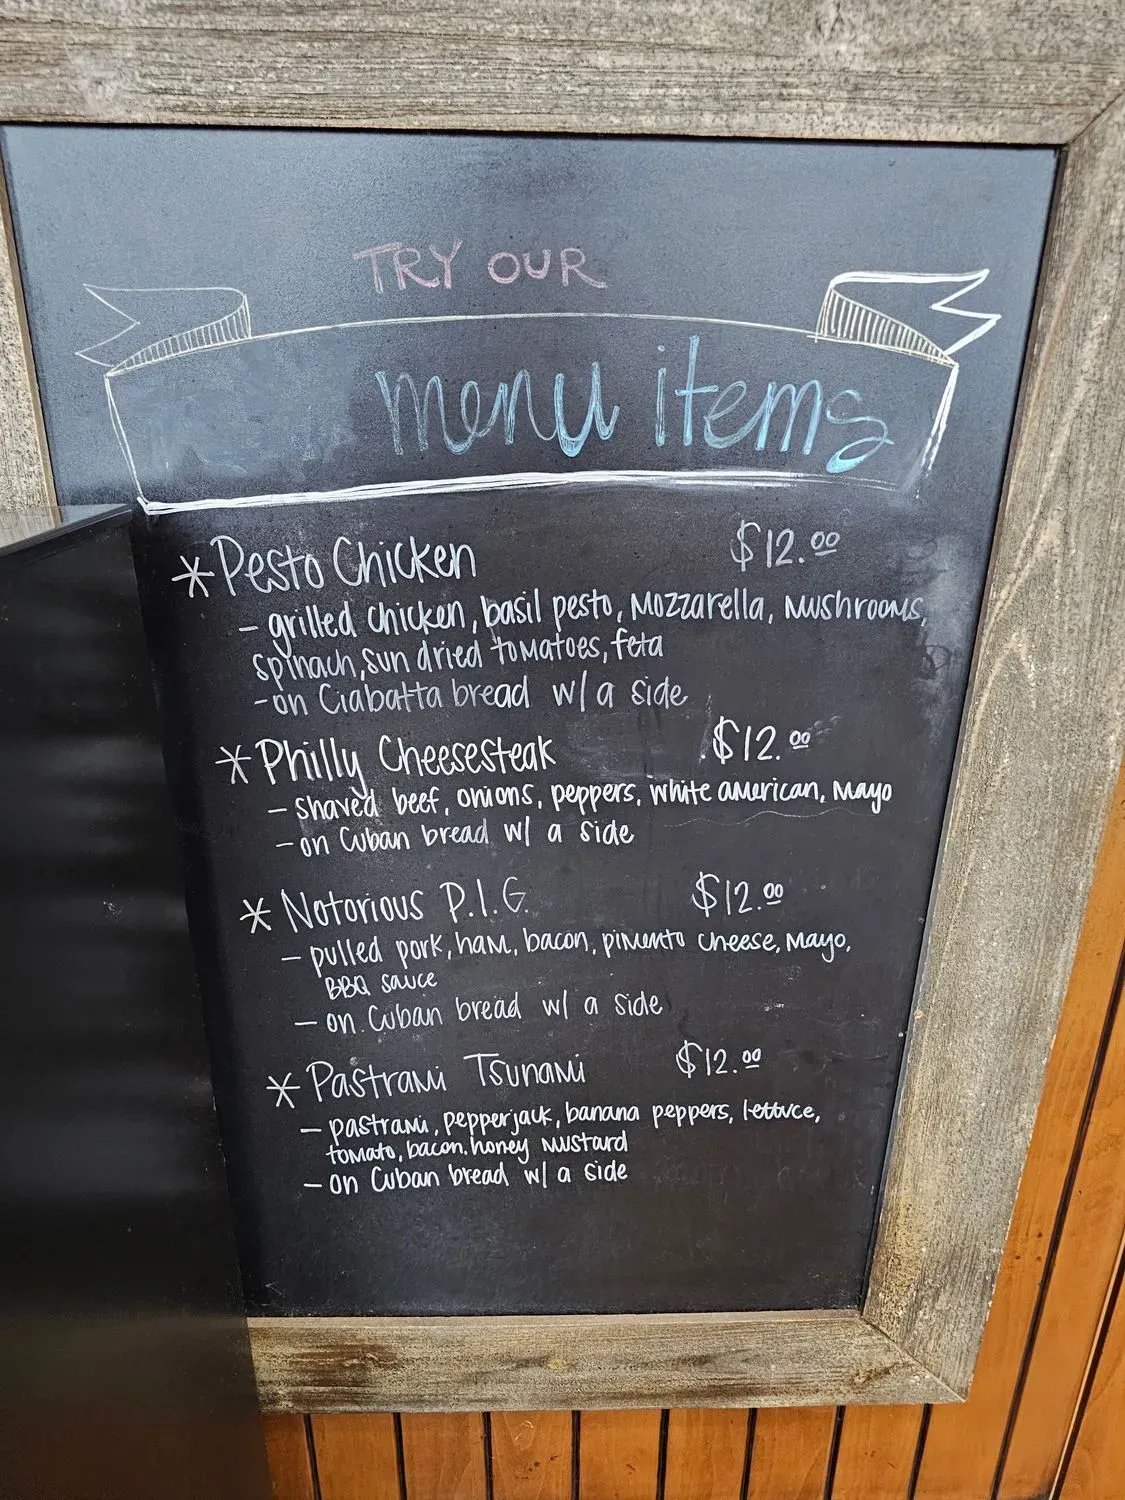 TRY OUR
menu items
* Pesto Chicken $12.00
- grilled chicken, basil pesto, Mozzarella, Mushrooms,
spinach, sun dried tomatoes, feta
- on Ciabatta bread w/ a side
* Philly Cheesesteak $12.00
- shaved beef, onions, peppers, white american, Mayo
- on Cuban bread w/ a side
* Notorious P.I.G. $12.00
- pulled pork, ham, bacon, pimento cheese, Mayo,
BBQ sauce
- on Cuban bread w/ a side
* Pastrami Tsunami $12.00
- pastrami, pepperjack, banana peppers, lettuce,
tomato, bacon, honey mustard
- on Cuban bread w/ a side